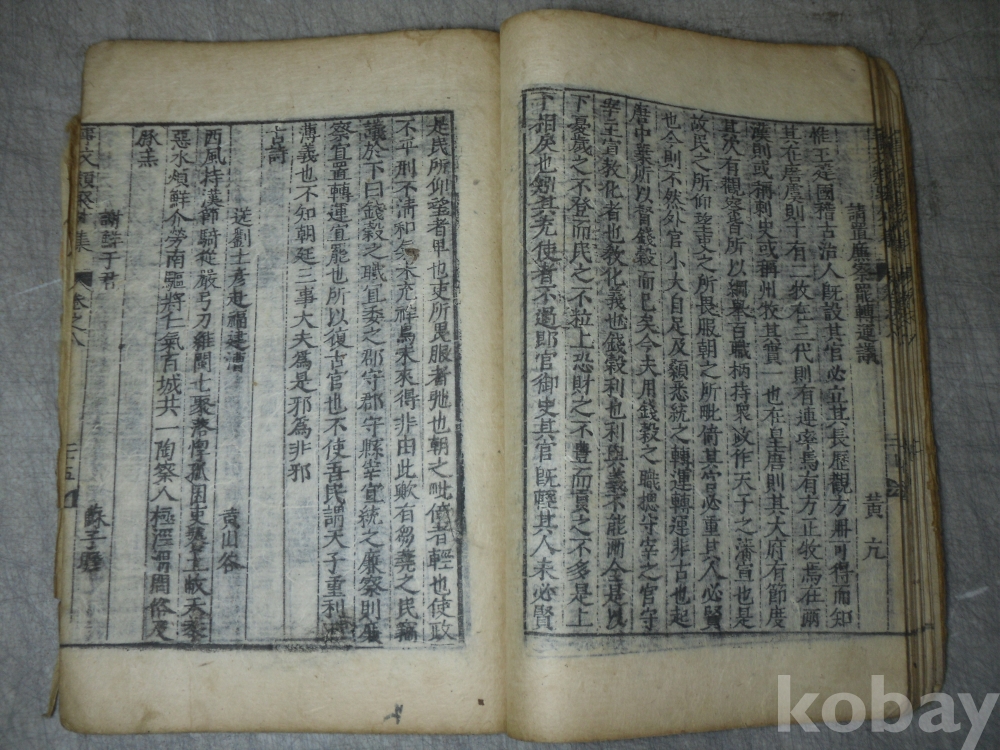 請置廉察罷轉運議
黄亢
惟王建國稽古治人旣設其官必立其長歷觀方冊可得而知
其在唐虞則十有二牧在二代則有連率焉有方正牧焉在兩
漢則或稱刺史或稱州牧其實一也在皇唐則其大府有節度
其次有觀察皆所以綱舉百職柄持衆政作天子之藩宣也是
故民之所仰望吏之所畏服朝之所毗倚其官必重其人必賢
也今則不然外官小大自足及額悉統之轉運轉運非古也起
唐中葉所以督錢穀而已矣今夫用錢穀之職揔守宰之官守
宰主宣教化者也教化義也錢穀利也利與義不能兩全是以
下憂歲之不登而民之不粒上恐財之不豊而賣之不多是上
下相戾也矧其充使者不過郎官御史其官旣輕其人未必賢
是民所仰望者卑也吏所畏服者弛也朝之毗倚者輕也使政
不平刑不清和氣不充祥鳥未來得非由此歟有芻蕘之民竊
議於下曰錢穀之職宜委之郡守郡守縣宰宜統之廉察則廉
察宜置轉運宜罷也所以復古官也不使吾民謂天子重利
薄義也不知朝廷三事大夫為是邪為非邪
古詩
送劉士彦赴福建漕
黄山谷
西風持漢節騎從嚴弓刀維閩七聚落惸孤困吏饕土𤱶天
惡水煩鮮介勞南驅將仁氣百城共一陶察人極涇渭問俗及
脉
謝鮮于君
蘇子
事文類聚 集
卷之八
二十五
kobay